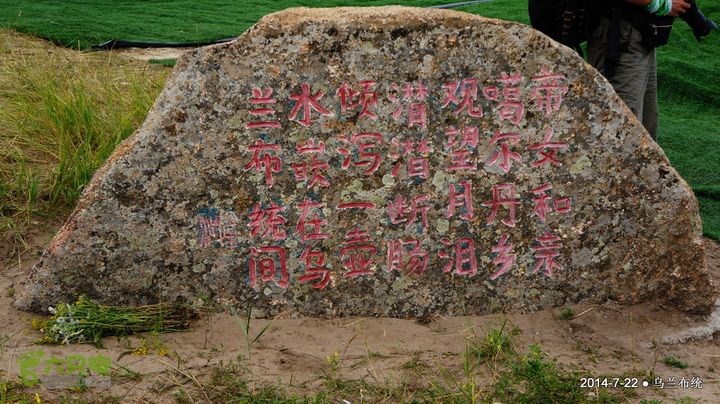 帝女和亲
噶尔丹乡
观望月泪
潜潜断肠
倾泻一壶
水嵌在乌
兰布统间
2014-7-22 ● 乌兰布统